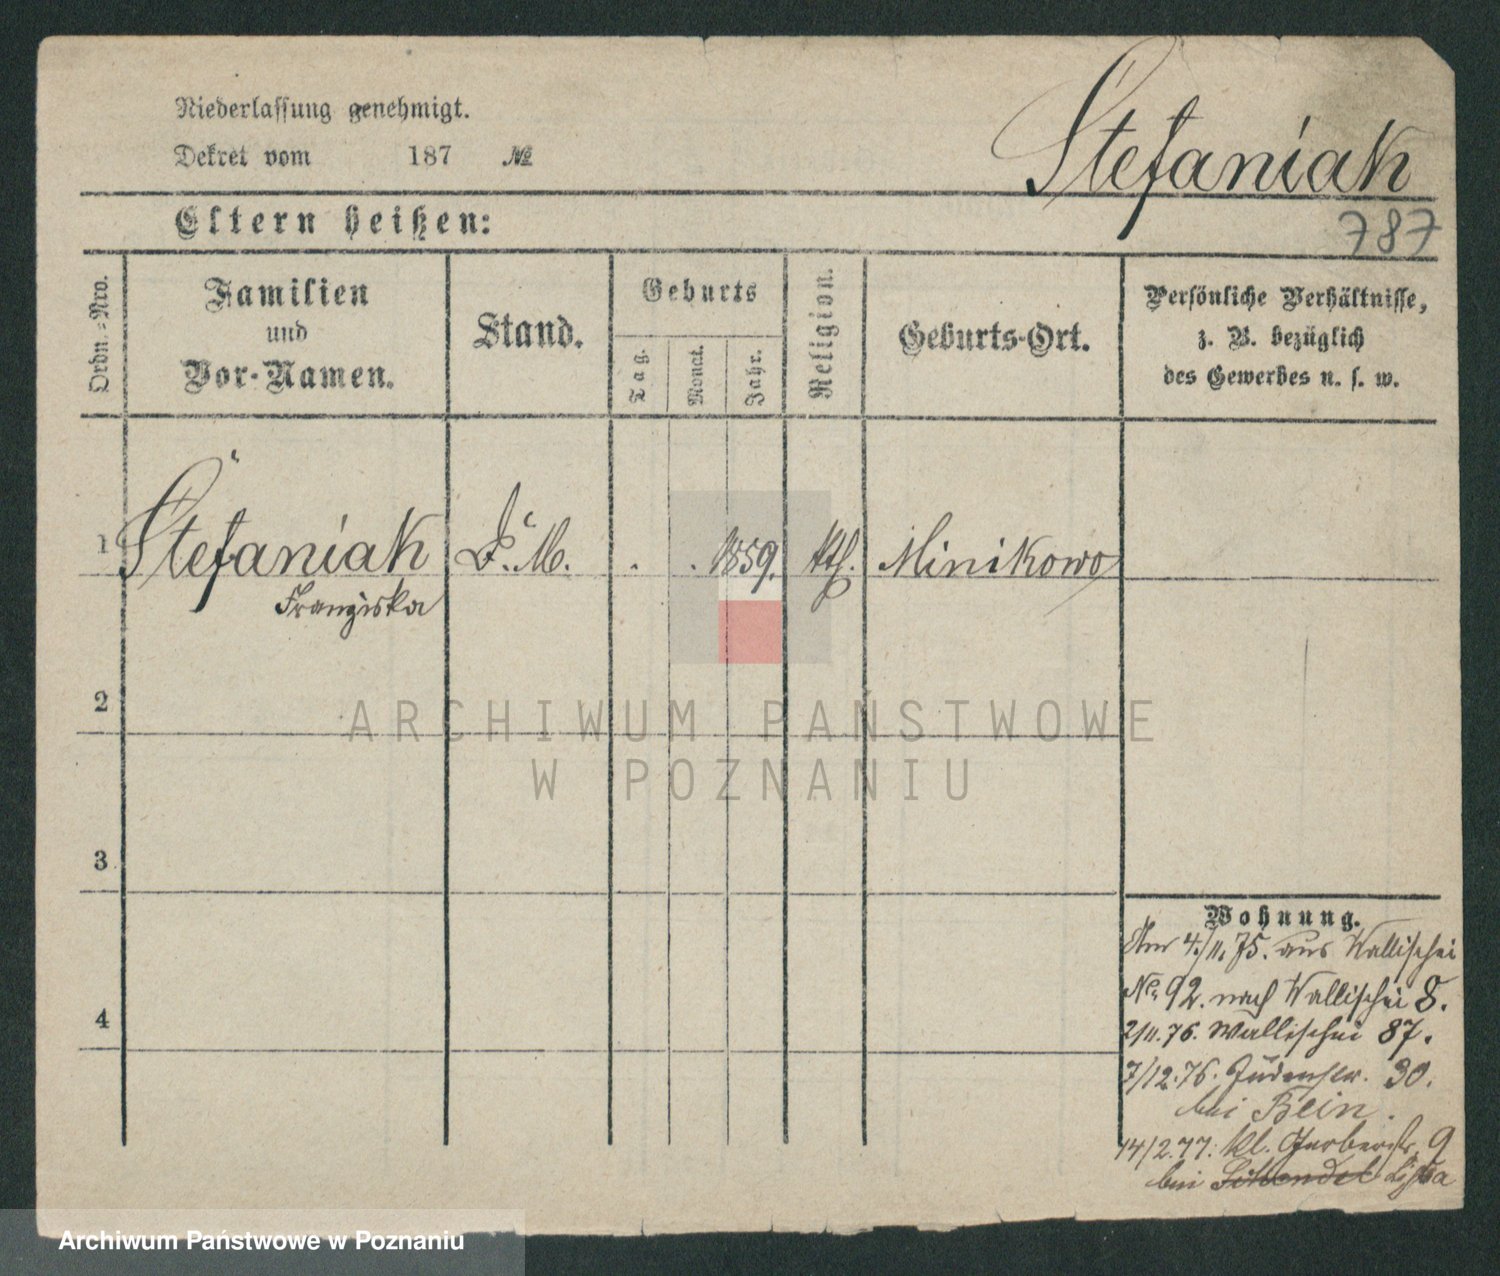 Niederlassung genehmigt.
Dekret vom 187 №
Stefaniak
Eltern heißen:
787
Ordn.-Nro.
Familien
und
Vor-Namen.
Stand.
Geburts
Tag.
Monat.
Jahr.
Religion.
Geburts-Ort.
Persönliche Verhältnisse,
z. B. bezüglich
des Gewerbes u. s. w.
1 Stefaniak D. M. . . 1859. kth. Minikowo
Franziska
2
3
4
Wohnung.
Am 4./11.75. aus Wallischei
No. 92. nach Wallischei 8.
2/11.76. Wallischei 87.
7/12.76. Judenstr. 30.
bei Bein.
14/2.77. kl. Gerberstr. 9
bei
ARCHIWUM PAŃSTWOWE
W POZNANIU
Archiwum Państwowe w Poznaniu